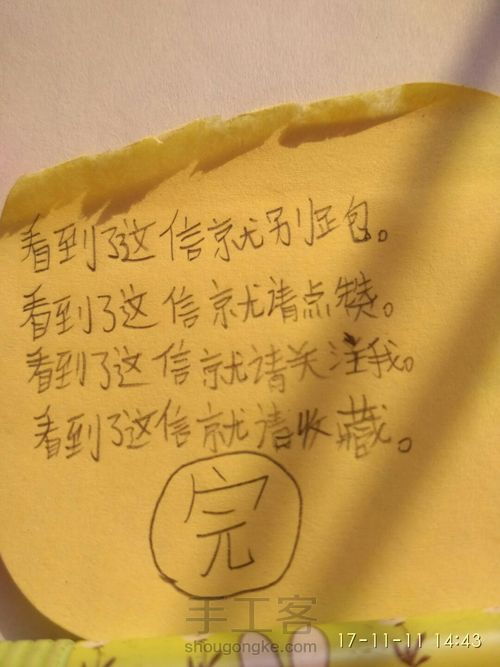 看到了这信就别跑。
看到了这信就请点赞。
看到了这信就请关注我。
看到了这信就请收藏。
完
手工客
shougongke.com
17-11-11 14:43